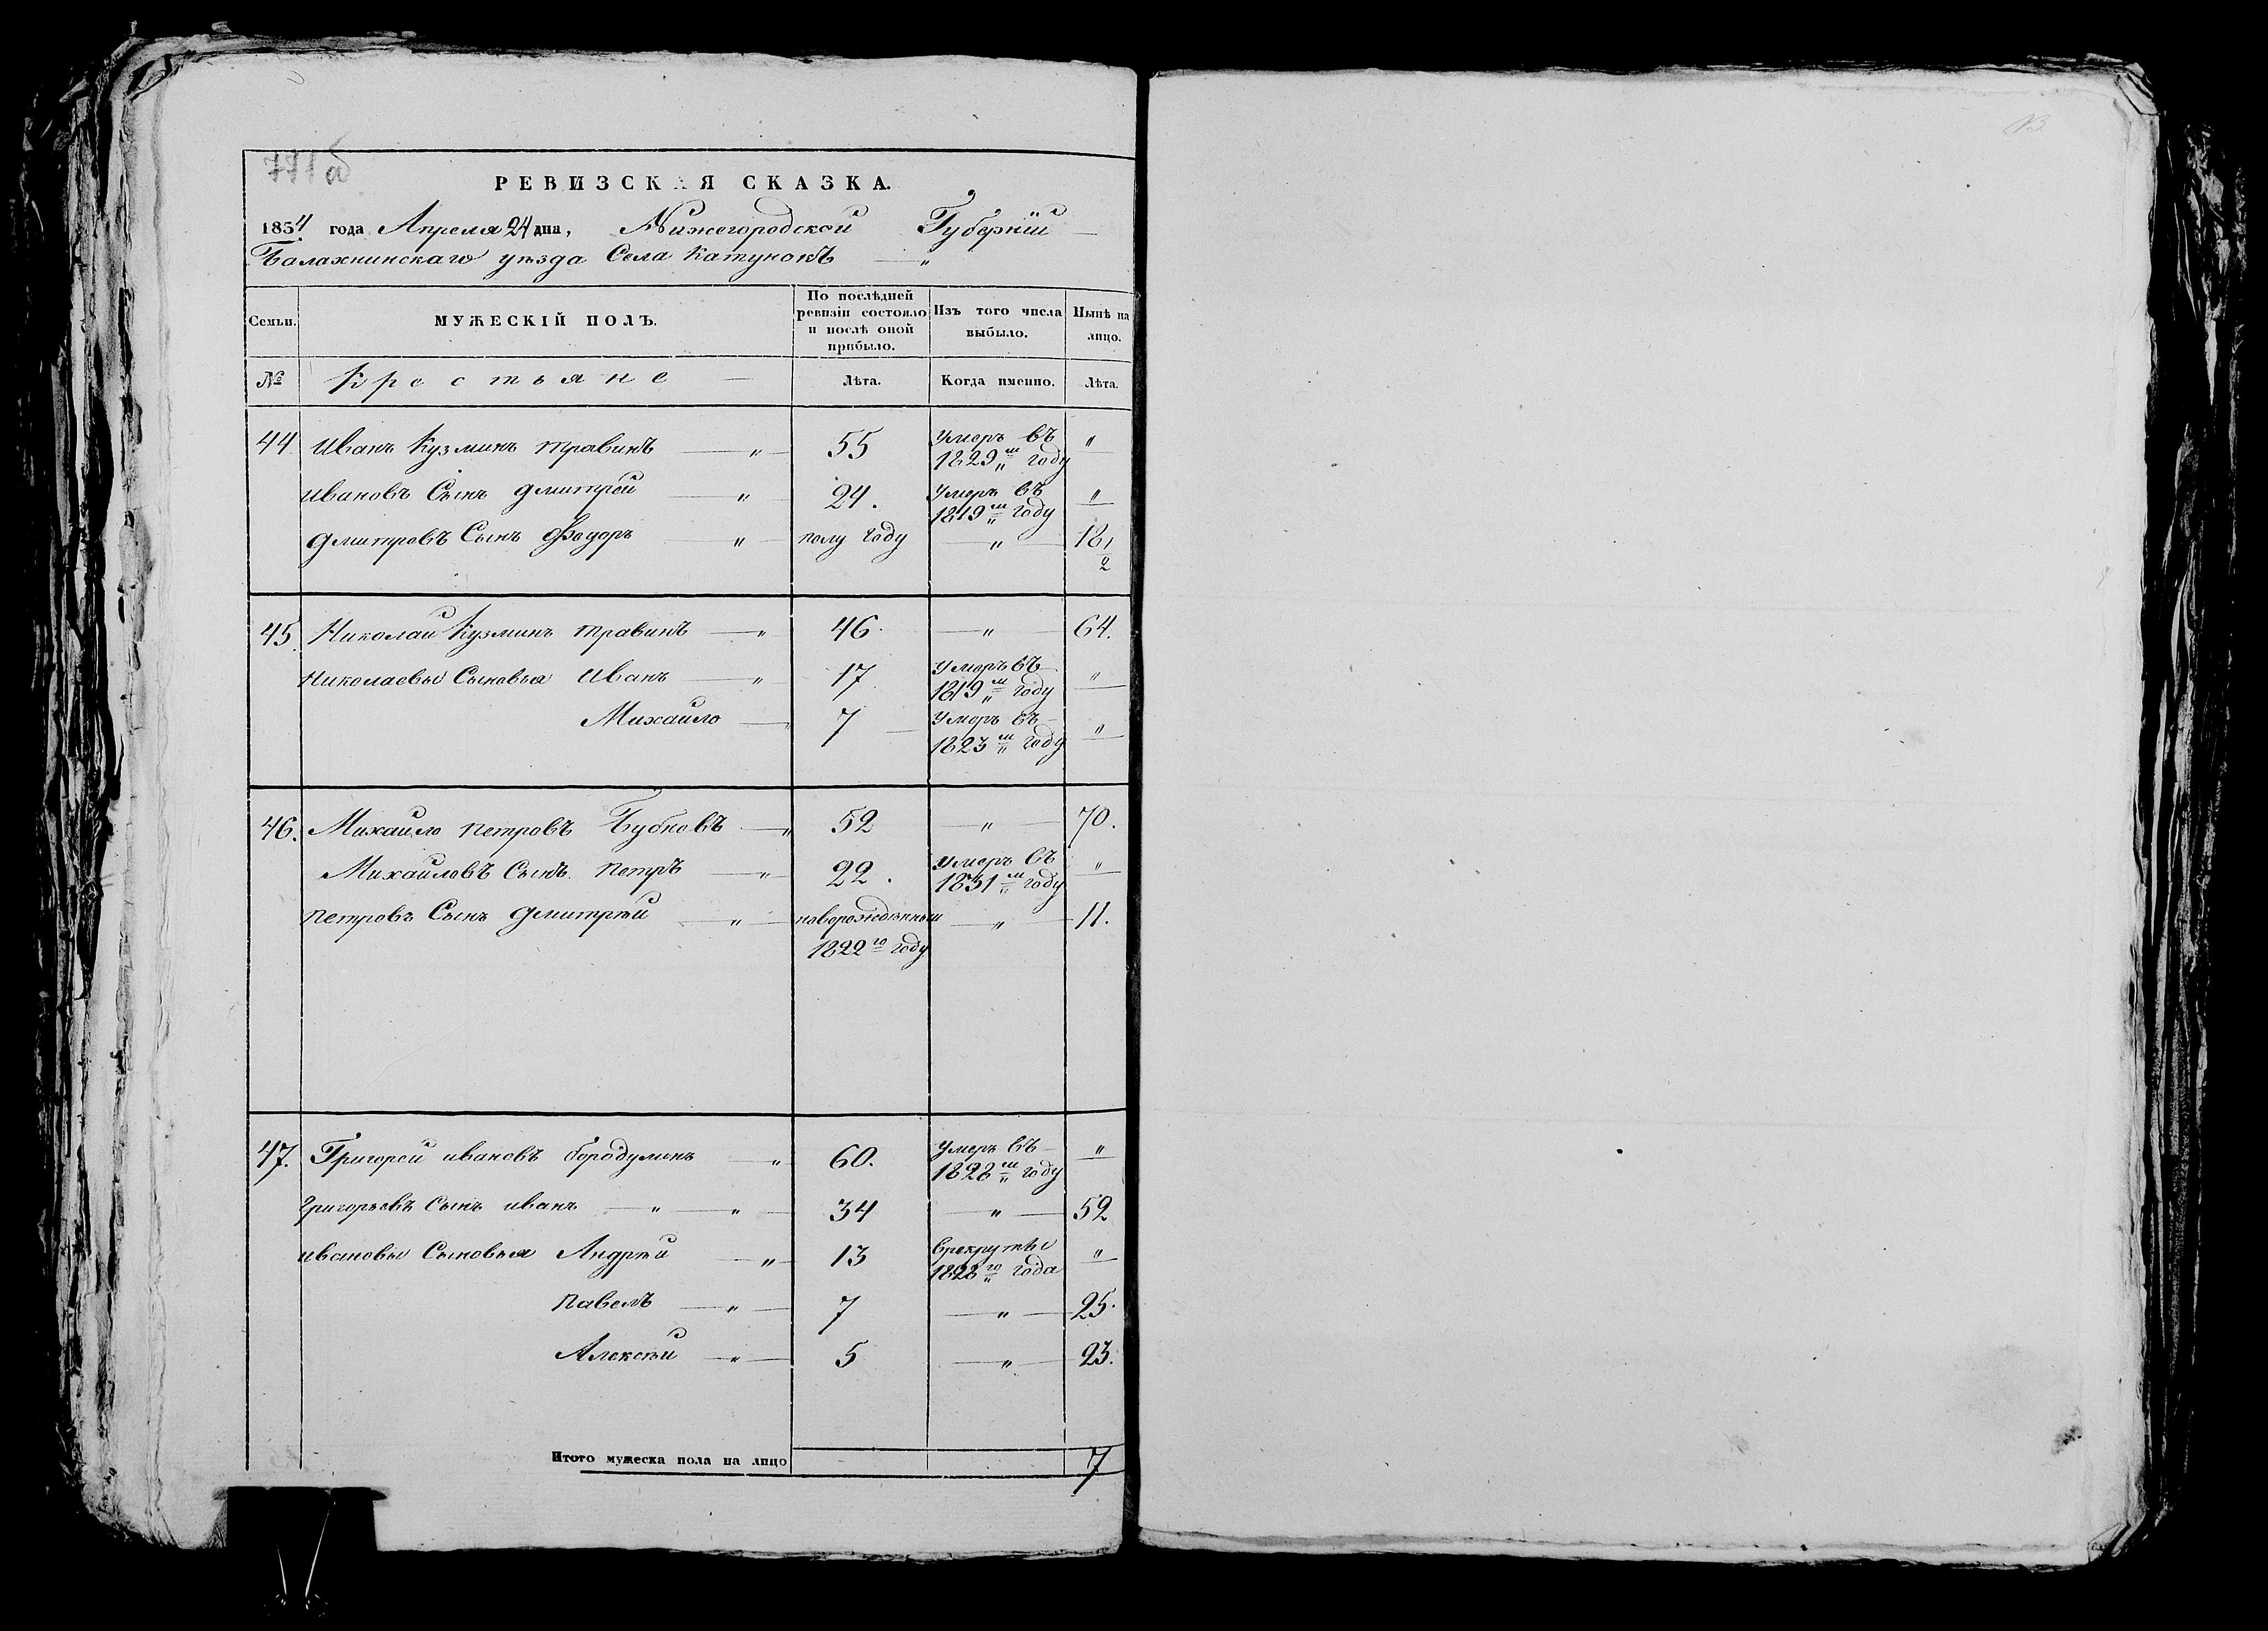 771 об
РЕВИЗСКАЯ СКАЗКА.
1834 года Апреля 24 дня, Нижегородской Губернїи
Балахнинскаго уѣзда Села Катунокъ "
Семьи. МУЖЕСКІЙ ПОЛЪ. По послѣдней ревизіи состояло и послѣ оной прибыло. Изъ того числа выбыло. Нынѣ на лицо.
№ Крестьяне Лѣта. Когда именно. Лѣта.
44 Иванъ Кузминъ травинъ " 55 умеръ въ 1829м году "
ивановъ Сынъ дмитрей " 24. умеръ въ 1819м году "
дмитровъ Сынъ Федоръ " полу году " 18 1/2
45. Николай Кузминъ травинъ " 46 " 64.
николаевы Сыновья иванъ " 17 умеръ въ 1819м году "
Михайло " 7 умеръ въ 1823м году "
46. Михайло петровъ Бубновъ " 52 " 70.
Михайловъ Сынъ петръ " 22. умеръ въ 1831м году "
петровъ Сынъ дмитрѣй " новорожденный 1822го году " 11.
47. Григорей ивановъ бородулинъ " 60. умеръ въ 1828м году "
григорьевъ Сынъ иванъ " " 34 " 52
ивановы Сыновья Андрѣй " 13 врекруты 1828го года "
павелъ " 7 " 25.
Алексѣй " 5 " 23.
Итого мужеска пола на лицо 7